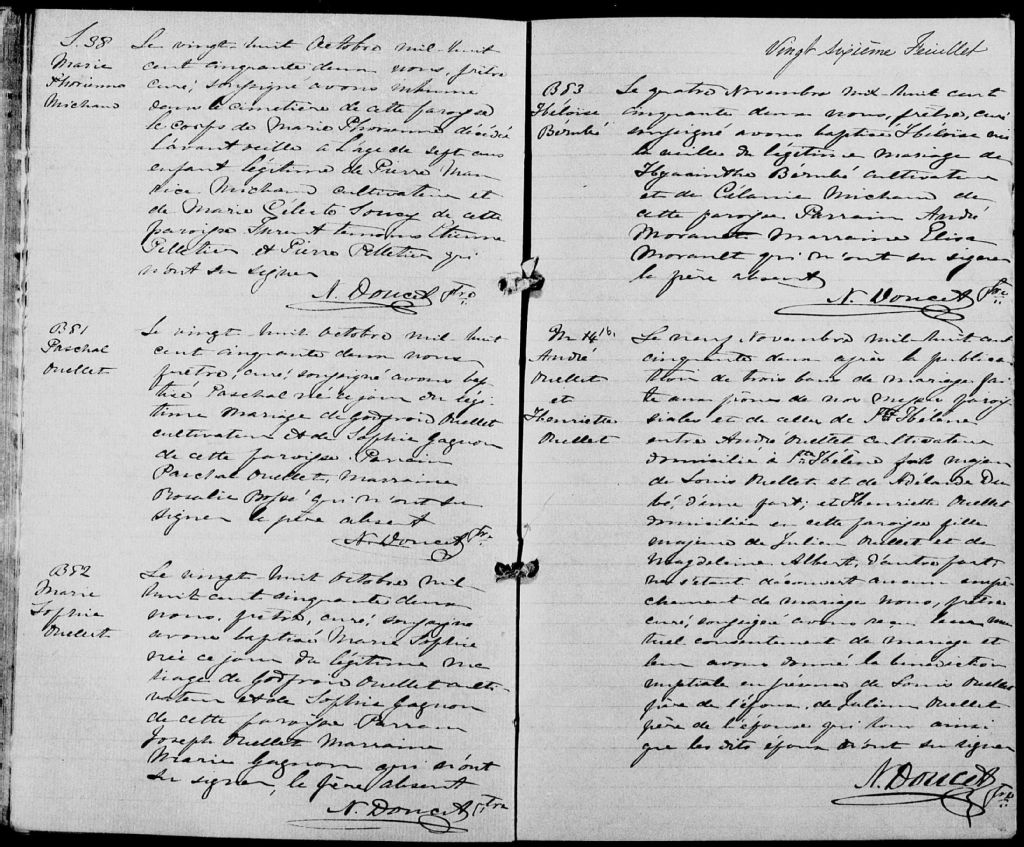 S. 38
Marie
Phorienne
Michaud
Le vingt-huit Octobre mil-huit
cent cinquante deux nous, prêtre
curé, soussigné avons inhumé
dans le cimetière de cette paroisse
le corps de Marie Phorienne décédée
l'avant veille à l'âge de sept ans
enfant légitime de Pierre Mau
rice Michaud cultivateur et
de Marie Gileste Soucy de cette
paroisse Furent témoins Etienne
Pelletier et Pierre Pelletier qui
n'ont su signer
N. Doucet Ptre
B81
Paschal
Ouellet
Le vingt-huit Octobre mil-huit
cent cinquante deux nous
prêtre, curé, soussigné avons bap
tisé Paschal né ce jour du légi
time mariage de Godfroid Ouellet
cultivateur et de Sophie Gagnon
de cette paroisse. Parrain
Paschal Ouellet, Marraine
Rosalie Bossé qui n'ont su
signer le père absent
N. Doucet Ptre
B82
Marie
Sophie
Ouellet
Le vingt-huit Octobre mil
huit cent cinquante deux
nous, prêtre, curé, soussigné
avons baptisé Marie Sophie
née ce jour du légitime ma
riage de Godfroid Ouellet culti-
vateur et de Sophie Gagnon
de cette paroisse Parrain
Joseph Ouellet Marraine
Marie Gagnon qui n'ont
su signer, le père absent
N. Doucet Ptre
Vingt sixième Feuillet
B83
Héloïse
Bérubé
Le quatre Novembre mil huit cent
cinquante deux nous, prêtre, curé
soussigné avons baptisé Héloïse née
la veille du légitime mariage de
Hyacinthe Bérubé cultivateur
et de Célanie Michaud de
cette paroisse Parrain André
Morault Marraine Elisa
Morault qui n'ont su signer
le père absent
N. Doucet Ptre
M 14
André
Ouellet
et
Henriette
Ouellet
Le neuf Novembre mil-huit cent
cinquante deux après la publica
tion de trois bans de mariage fai
te aux prônes de nos messes parois
siales et de celles de Ste Hélène
entre André Ouellet cultivateur
domicilié à Ste Hélène fils majeur
de Louis Ouellet et de Adélaïde Du
bé, d'une part; et Henriette Ouellet
domiciliée en cette paroisse fille
majeure de Julien Ouellet et de
Magdeleine Albert, d'autre part;
ne s'étant découvert aucun empê
chement de mariage Nous, prêtre
curé, soussigné avons reçu leur mu
tuel consentement de mariage et
leur avons donné la bénédiction
nuptiale en présence de Louis Ouellet
père de l'époux, de Julien Ouellet
père de l'épouse qui tous ainsi
que les dits époux n'ont su signer
N. Doucet Ptre